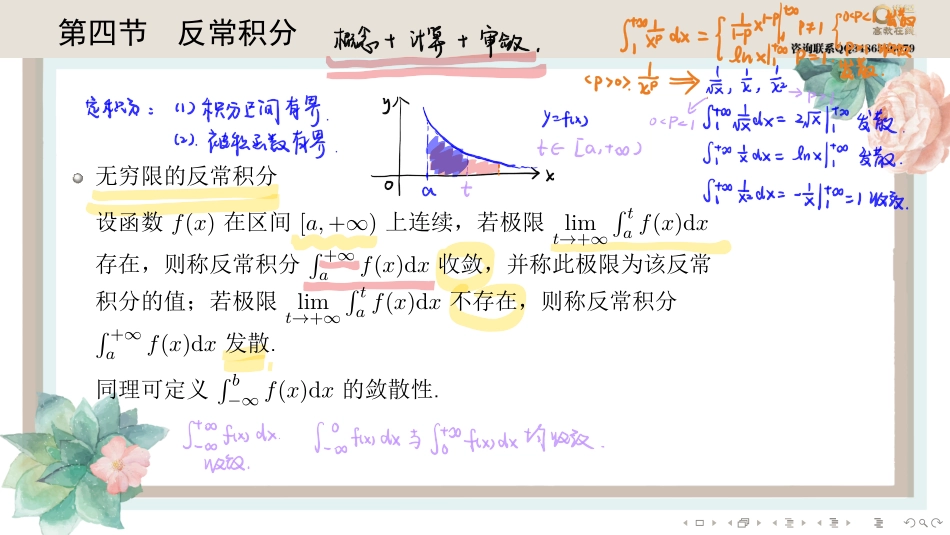 第四节 反常积分
概念+计算+审敛.
∫₁^{+∞} 1/x^p dx = { 1/(1-p) x^{1-p} |₁^{+∞}, p≠1 { 0<p<1 发散
ln x |₁^{+∞} p=1 发散
(p>0) 1/x^p ⇒ 1/√x, 1/x, 1/x²
0<p<1
定积分: (1) 积分区间有界.
(2). 被积函数有界.
y
y=f(x)
t∈[a,+∞)
0 a t x
∫₁^{+∞} 1/√x dx = 2√x |₁^{+∞} 发散.
∫₁^{+∞} 1/x dx = ln x |₁^{+∞} 发散.
∫₁^{+∞} 1/x² dx = -1/x |₁^{+∞} = 1 收敛.
无穷限的反常积分
设函数 f(x) 在区间 [a, +∞) 上连续，若极限 lim_{t→+∞} ∫ₐ^t f(x)dx
存在，则称反常积分 ∫ₐ^{+∞} f(x)dx 收敛，并称此极限为该反常
积分的值；若极限 lim_{t→+∞} ∫ₐ^t f(x)dx 不存在，则称反常积分
∫ₐ^{+∞} f(x)dx 发散.
同理可定义 ∫_{-∞}^b f(x)dx 的敛散性.
∫_{-∞}^{+∞} f(x)dx. ∫_{-∞}^0 f(x)dx 与 ∫₀^{+∞} f(x)dx 均收敛.
收敛.